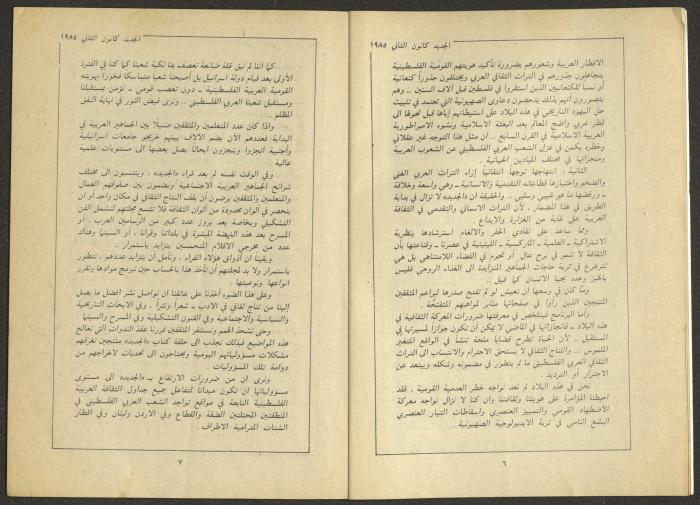 الجديد كانون الثاني ١٩٨٥
الاقطار العربية وشعورهم بضرورة تأكيد هويتهم القومية الفلسطينية
يتجاهلون جذورهم في التراث الثقافي العربي ويختلقون جذوراً كنعانية
أو نسباً للكنعانيين الذين استقروا في فلسطين قبل آلاف السنين .. وهم
يتصورون أنهم بذلك يدحضون دعاوى الصهيونية التي تعتمد في تثبيت
حق اليهود التاريخي في هذه البلاد على استيطانهم إياها قبل تحولها الى
قطر عربي واضح المعالم بعد البعثة الاسلامية ونشوء الامبراطورية
العربية الاسلامية في القرن السابع .. ان مثل هذا التوجه غير عقلاني
وخطره يكمن في عزل الشعب العربي الفلسطيني عن الشعوب العربية
ومنجزاتها في مختلف الميادين الحياتية .
الثانية : انتهاجها توجهاً انتقائياً إزاء التراث العربي الغني
والضخم واختيارها قطاعاته التقدمية والانسانية ـ وهي واسعة وخلاقة
ـ ورفضها ما هو غيبي وسلبي .. والحقيقة ان «الجديد» لا تزال في بداية
الطريق في هذا المضمار، لأن التراث الانساني والتقدمي في الثقافة
العربية على غاية من الغزارة والابداع .
ومما ساعد على تفادي الحفر والالغام استرشادها بنظرية
الاشتراكية ـ العلمية ـ الماركسية ـ اللينينية في عصرنا ـ وقناعتها بأن
الثقافة لا تنمو في برج عال أو تحوم في الفضاء اللامتناهي بل هي
تترعرع في تربة حاجات الجماهير المتزايدة الى الغذاء الروحي فليس
بالخبز وحده يحيا الانسان كما قيل ..
وما كان في وسعها أن تعيش لو لم تفتح صدرها لبراعم المثقفين
المنتجين الذين رأوا في صفحاتها منابر لمواهبهم المتفتحة .
وأما البرنامج فيتلخص في معرفتها ضرورات المعركة الثقافية في
هذه البلاد ـ فانجازاتها في الماضي لا يمكن أن تكون جوازاً لمسيرتها في
المستقبل .. لأن الحياة تطرح قضايا ملحة تنشأ في الواقع المتغير
الملموس ... والنتاج الثقافي لا يستحق الاحترام والانتساب الى التراث
الثقافي العربي الفلسطيني ما لم يتطور في مضمونه وشكله ويبتعد عن
الاجترار أو الترديد .
نحن في هذه البلاد لم نعد نواجه خطر العدمية القومية ، فقد
احبطنا المؤامرة على هويتنا وثقافتنا وان كنا لا نزال نواجه معركة
الاضطهاد القومي والتمييز العنصري واسقاطات التيار العنصري
البشع النامي في تربة الايديولوجية الصهيونية .
٦
الجديد كانون الثاني ١٩٨٥
كما اننا لم نبق قلة ضائعة تعصف بنا نكبة شعبنا كما كنا في الفترة
الأولى بعد قيام دولة اسرائيل بل أصبحنا شعباً متماسكاً فخوراً بهويته
القومية العربية الفلسطينية ـ دون تعصب قومي ـ نؤمن بمستقبلنا
ومستقبل شعبنا العربي الفلسطيني .. ونرى فيض النور في نهاية النفق
المظلم ..
واذا كان عدد المتعلمين والمثقفين ضئيلاً بين الجماهير العربية في
البداية فعددهم الآن يضم الآلاف بينهم خريجو جامعات اسرائيلية
وأجنبية انجزوا وينجزون أبحاثاً يصل بعضها الى مستويات علمية
عالية .
وفي الوقت نفسه لم يعد قراء «الجديد» ، وينتسبون الى مختلف
شرائح الجماهير العربية الاجتماعية ويضمون بين صفوفهم العمال
والمتعلمين والمثقفين يرضون أن يقف النتاج الثقافي في مكان واحد أو ان
ينحصر في ألوان محدودة من ألوان الثقافة فلا تتسع مجلتهم لتشمل الفن
التشكيلي وبخاصة بعد بروز عدد كبير من الرسامين العرب ، أو
المسرح بعد هذه النهضة المبشرة في بلداتنا وقرانا ، أو السينما وهناك
عدد من مخرجي الافلام المتحمسين يتزايد باستمرار ..
ويقيننا ان أذواق هؤلاء القراء ، ونأمل أن يتزايد عددهم ، تتطور
باستمرار ولا بد لمجلتهم أن تأخذ هذا بالحساب حين تبرمج موادها وتقرر
أنواعها ونوعيتها .
وعلى هذا الضوء أخذنا على عاتقنا ان نواصل نشر افضل ما يصل
إلينا من نتاج ثقافي في الادب ـ شعراً ونثراً ، وفي الابحاث التاريخية
والسياسية والاجتماعية وفي الفنون التشكيلية وفي المسرح والسينما .
وحتى نشحذ الهمم ونستنفر المثقفين قررنا عقد الندوات التي تعالج
هذه المواضيع فبذلك نجذب الى حلقة كتاب «الجديد» منتجين تغرقهم
مشكلات مسؤولياتهم اليومية ويحتاجون الى تحديات لاخراجهم من
دوامة تلك المسؤوليات .
ونرى ان من ضرورات الارتفاع بـ «الجديد» الى مستوى
مسؤولياتها ان تكون ميداناً لتفاعل جميع جداول الثقافة العربية
الفلسطينية النابعة في مواقع تواجد الشعب العربي الفلسطيني في
المنطقتين المحتلتين الضفة والقطاع وفي الاردن ولبنان وفي اقطار
الشتات المترامية الاطراف .
٧